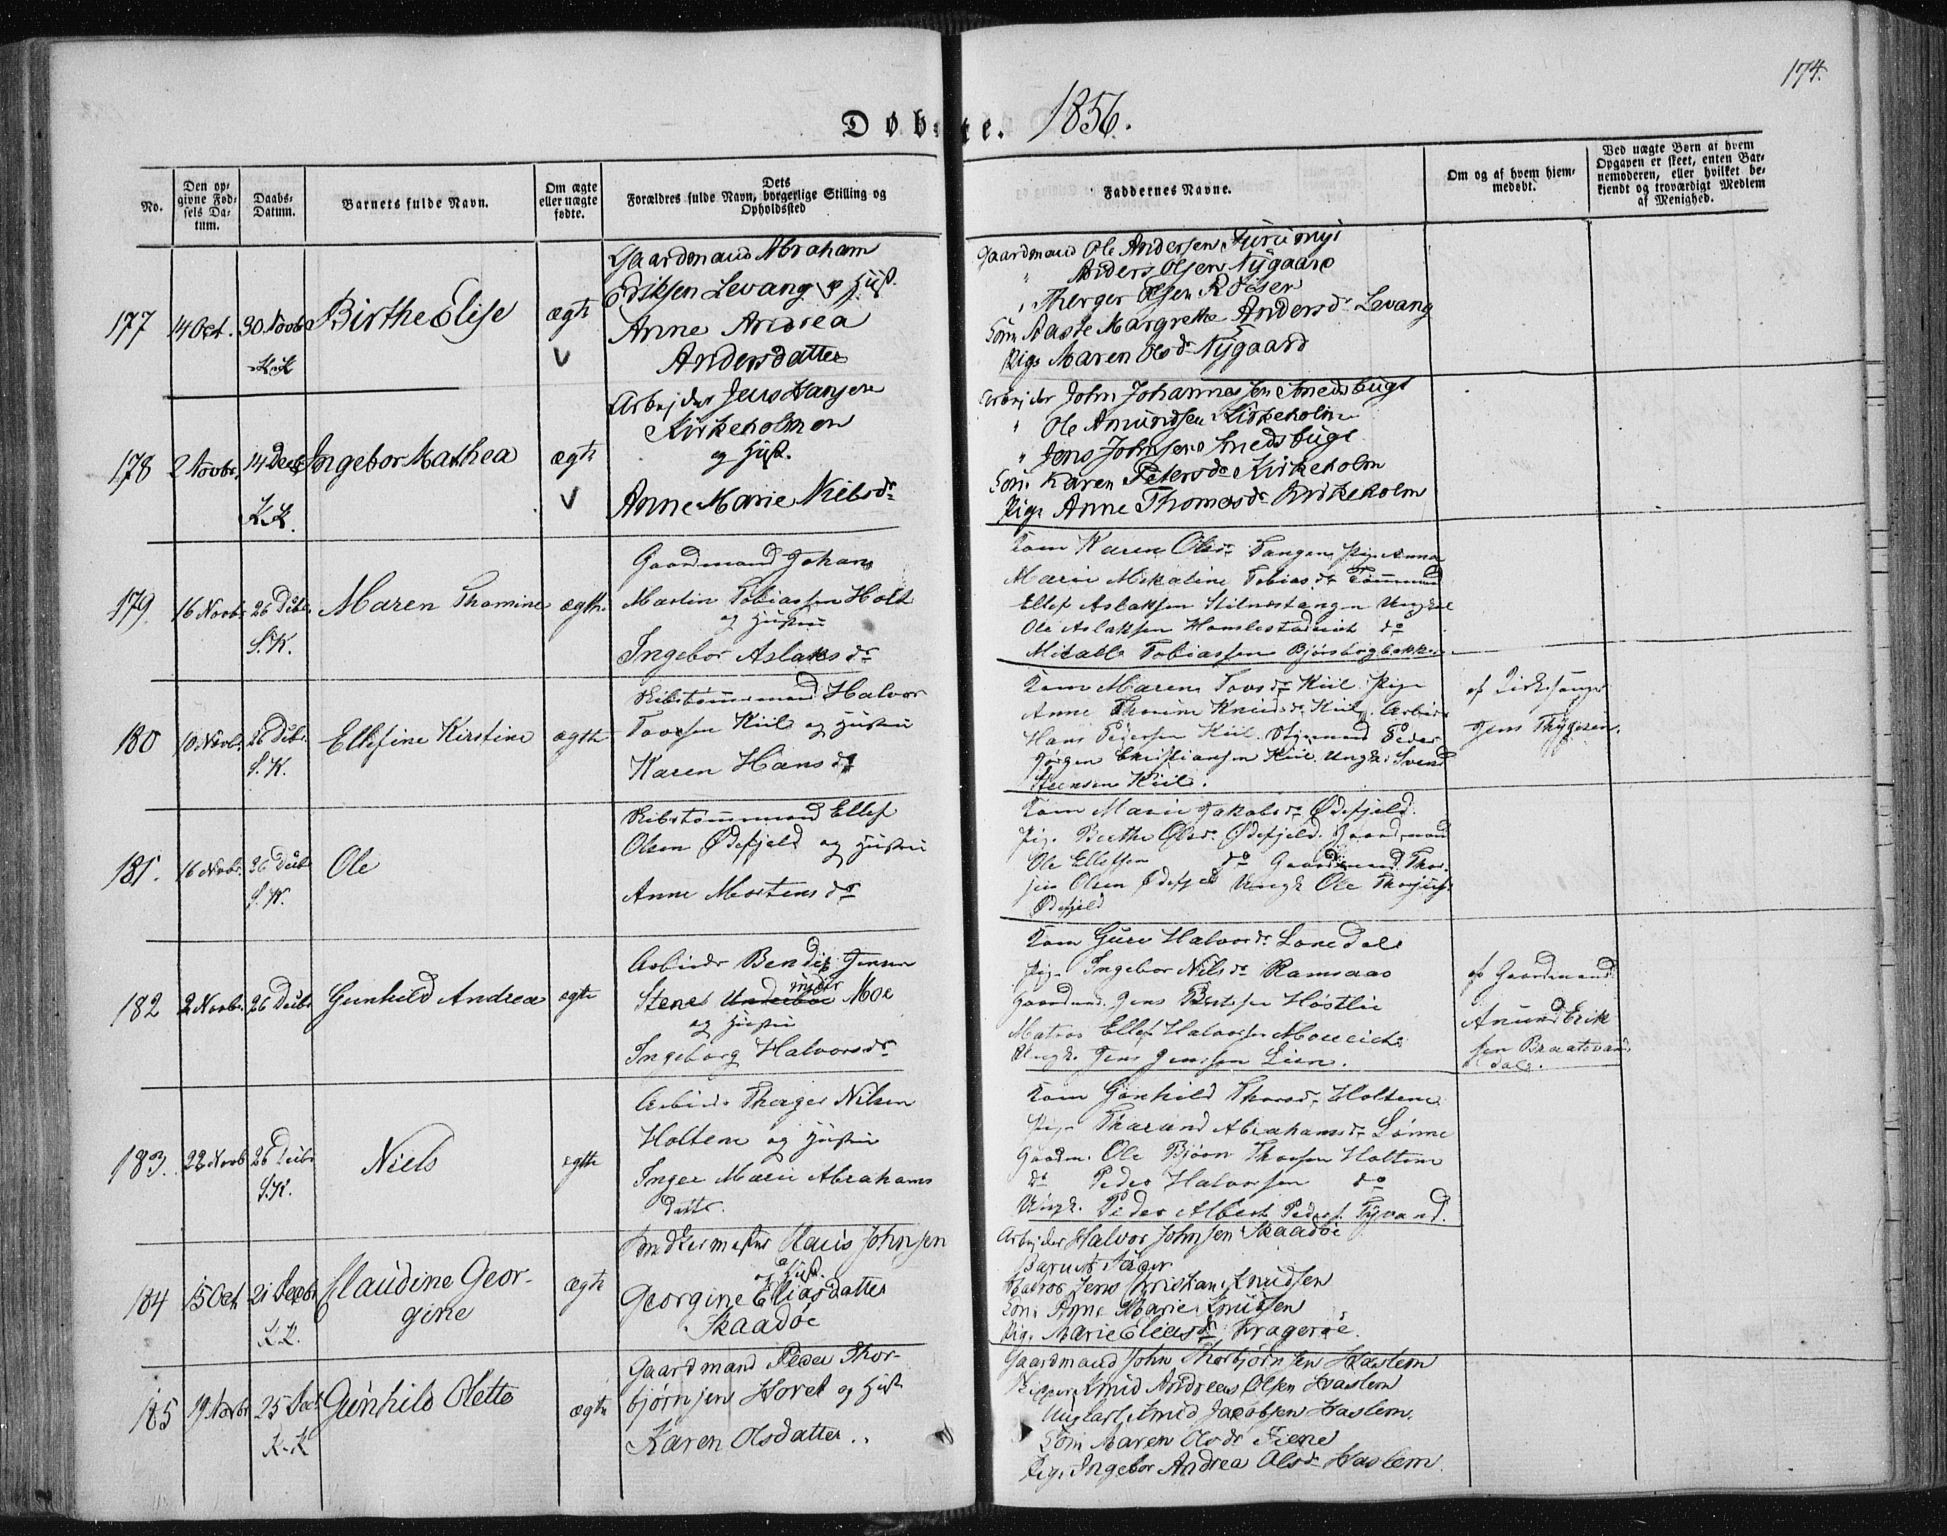 174.
Døbte. 1856.
No.
Den opgivne Fødsels Datum.
Daabs-Datum.
Barnets fulde Navn.
Om ægte eller uægte fødte.
Forældres fulde Navn, Dets borgerlige Stilling og Opholdssted
Faddernes Navne.
Om og af hvem hjemmedøbt.
Ved uægte Børn af hvem Opgaven er skeet, enten Barnemoderen, eller hvilket bekjendt og troværdigt Medlem af Menighed.
177 14 Oct. 30 Novbr K.K Birthe Elise ægte V
Gaardmand Abraham
Eriksen Levang og Hust.
Anne Andrea
Andersdatter
Gaardmand Ole Andersen
Anders Olsen Nygaard
Therger Olsen
Kone Aaste Margrethe Andersdr Levang
Pige Maren Olsdr Nygaard
178 2 Novbr. 14 Decb K.K. Ingebor Mathea ægte V
Arbejder Jens Hansen
Kirkeholmen
og Hust.
Anne Marie Nielsdr
Arbejder John Johannesen Smedsbugt
" Ole Amundsen Kirkeholm
" Jens Johnsen Smedsbugt
Kone Karen Petersdr Kirkeholm
Pige Anne Thomesdr Kirkeholm
179. 16 Novbr. 26 Debr. S.K. Maren Thomine ægthe
Gaardmand Johan
Martin Tobiassen Holt
og Hustru
Ingebor Aslaksdr
Kone Karen Olsdr Tangen Pige Anne
Marie Mikaline Tobiasdr
Ellef Aslaksen Stilnestangen Ungkal
Ole Aslaksen do
Tobiassen
180 10 Novbr. 26 Debr. S.K. Ellefine Kirstine ægthe
Skibstømmermand Halvor
Tovsen Kiil og Hustru
Karen Hansdr
Kone Maren Tovsdr Kiil. Pige
Anne Kiil. Arbeider
Hans Pedersen Kiil. Styrmand Peder
Jørgen Christiansen Kiil. Ungk. Svend
Steensen Kiil.
af Kirkesanger
Jens Thygesen.
181. 16 Novbr. 26 Debr. S.K. Ole
Skibstømmermand Ellef
Olsen Ødefjeld og Hustru
Anne Mortensdr
Kone Marie Jakobsdr Ødefjeld.
Pige. Berthe Olsdr Ødefjeld. Gaardmand
Ole Ellefsen do Gaardmand Thor-
jus Olsen Ødefjeld Ungk Ole
Ødefjeld
182 2 Novbr. 26 Debr Gunhild Andrea ægte
Arbeider Bendix Jensen
Stene Moe
og Hustru
Ingeborg Halvorsdr
Kone Guro Halvorsdr Lonedal
Pige Ingebor Nilsdr Ramsaas
Gaardmd. Jens Høstlie
Matros Ellef Halvorsen
Ungk. Jens Jensen Lien.
af Gaardmand
Anund Erik
sen Braatvand
dal.
183. 22 Novb 26 Debr S.K. Niels ægthe
Arbeider Therger Nilsen
Holtene og Hustru
Inger Marie Abrahams
datr.
Kone Gunhild Thorsdr Holtene
Pige Abrahamsdr Lønne
Gaardm. Ole Bjørn Thorsen Holtene
do Peder Halvorsen do
Ungk. Peder Albert Peders. Tyvand.
184 15 Oct 21 Decbr K.K. Claudine Georgine ægte
Snedkermester Claus Johnsen
og Hust.
Georgine Eliasdatter
Skaadøe
Arbejder Halvor Johnsen Skaadøe
Barnets Fader
Matros Jens Christian Knudsen
Kone Anne Marie Knudsen
Pige Marie Eliasdr Kragerøe.
185 19 Novbr 25 Dec K.K Gunhild Olette ægte
Gaardmand Peder Thor-
bjørnsen Hovet og Hust
Karen Olsdatter
Gaardmand John Thorbjørnsen Haslem
Skipper Knud Andreas Olsen Haslem
Ungkarl Knud Jacobsen Haslem.
Kone Maren Olsdr Fiene
Pige Ingebor Andrea Olsdr Haslem.